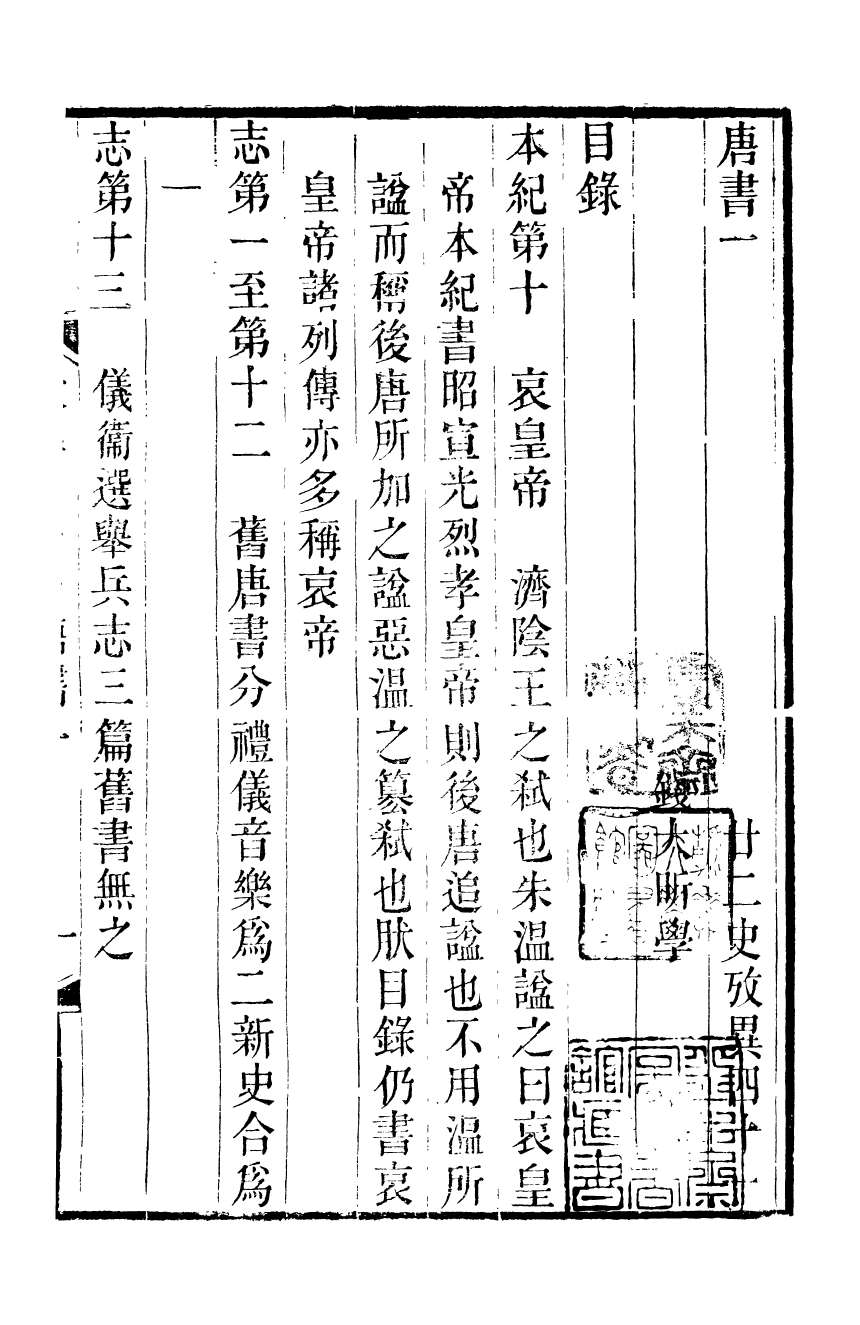 唐書一　廿二史攷異四十一
錢大昕學
目錄
本紀第十　哀皇帝　濟陰王之弒也朱温諡之曰哀皇
帝本紀書昭宣光烈孝皇帝則後唐追諡也不用溫所
諡而稱後唐所加之諡惡溫之篡弒也肰目錄仍書哀
皇帝諸列傳亦多稱哀帝
志第一至第十二　舊唐書分禮儀音樂爲二新史合爲
一
志第十三　儀衞選舉兵志三篇舊書無之